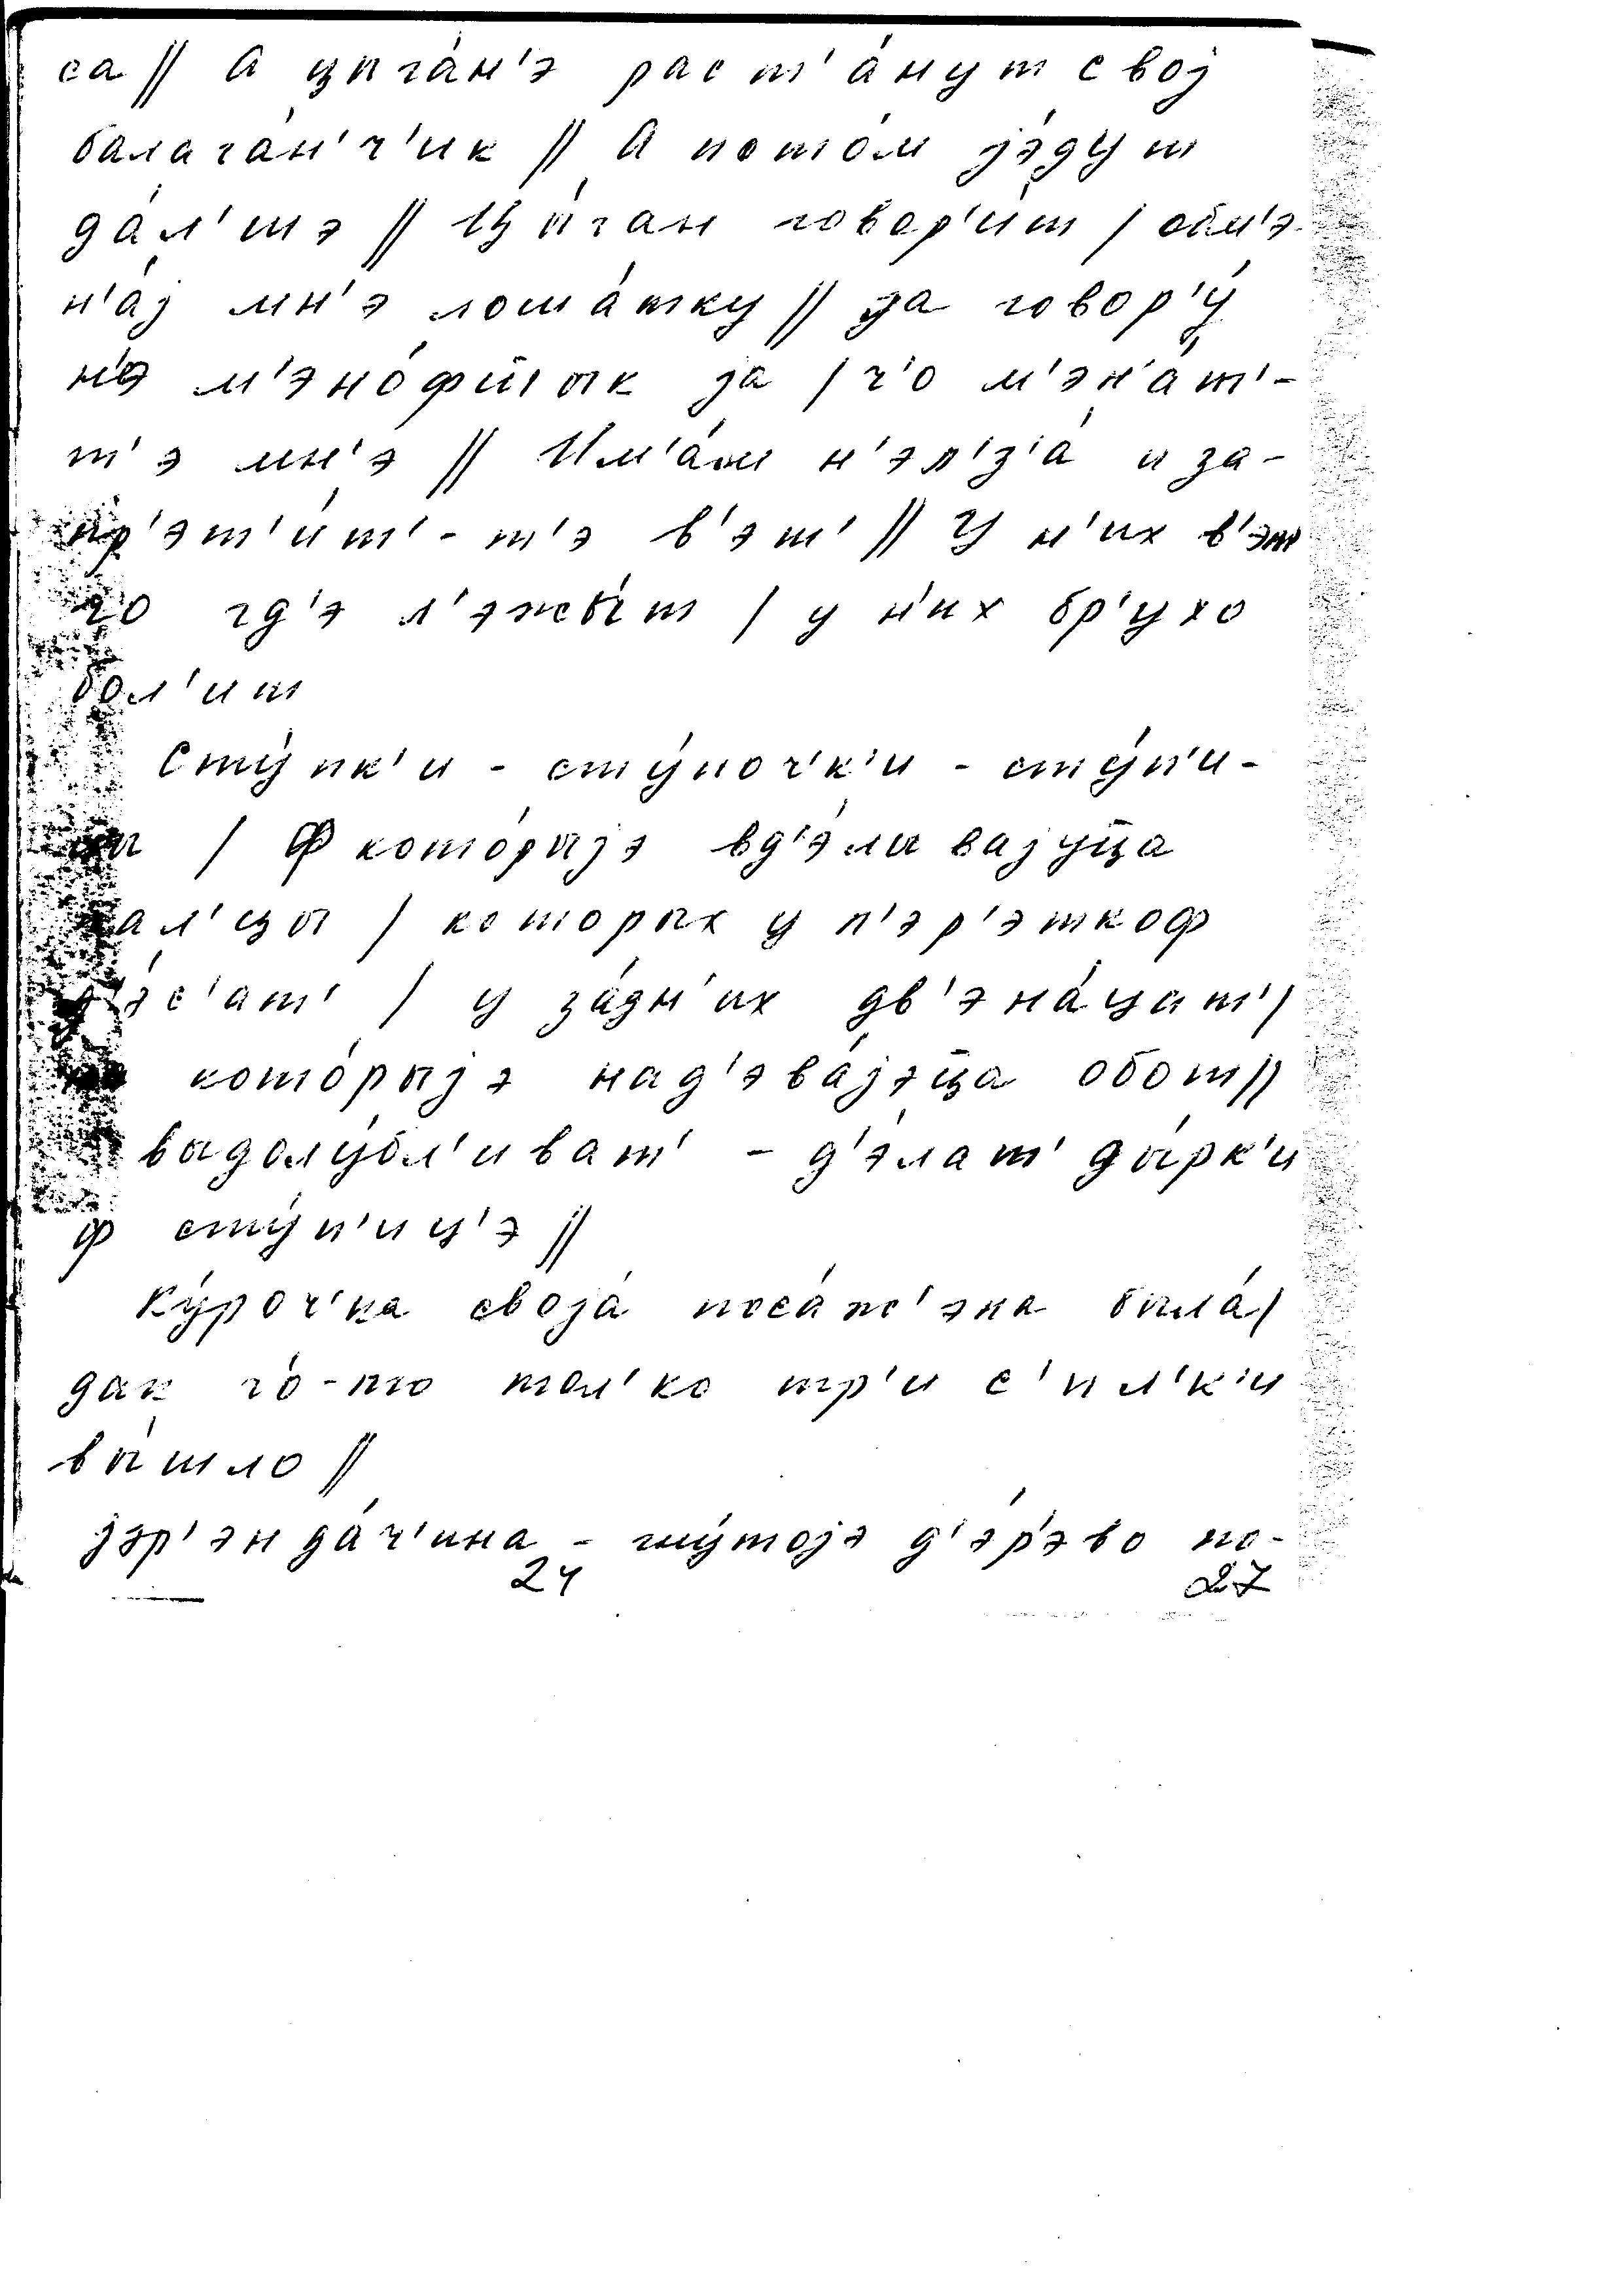 са // А цыга́н'э раст'а́нут свој
балага́н'ч'ик // А пото́м јэ́дут
да́л'шэ // Цы́ган говор'и́т / обм'э-
н'а́ј мн'э лоша́тку // ја говор'у́
н'э м'эно́фшык ја / ч'о м'эн'а́т'-
т'э мн'э // Им'а́м н'эл'з'а́ и за-
пр'эт'и́т'-т'э в'эт' // У н'их в'эт
ч'о гд'э л'эжы́т / у н'их бр'ухо
бол'ит
Сту́пк'и - сту́поч'к'и - сту́п'и-
цы / Ф кото́рыјэ вд'э́лывајуц̄а
пал'цы / которых у п'эр'эткоф
д'э́с'ат' / у за́дн'их дв'эна́цат' /
на кото́рыјэ над'эва́јэц̄а обот //
выдолу́бл'иват' - д'э́лат' ды́рк'и
ф сту́п'иц'э //
Ку́роч'ка својá поса́ж'эна была́ /
дак ч'о́-то тол'ко тр'и с'ипл'к'и
вы́шло //
јэр'энда́ч'ина - гну́тојэ д'э́р'эво по-
24 27